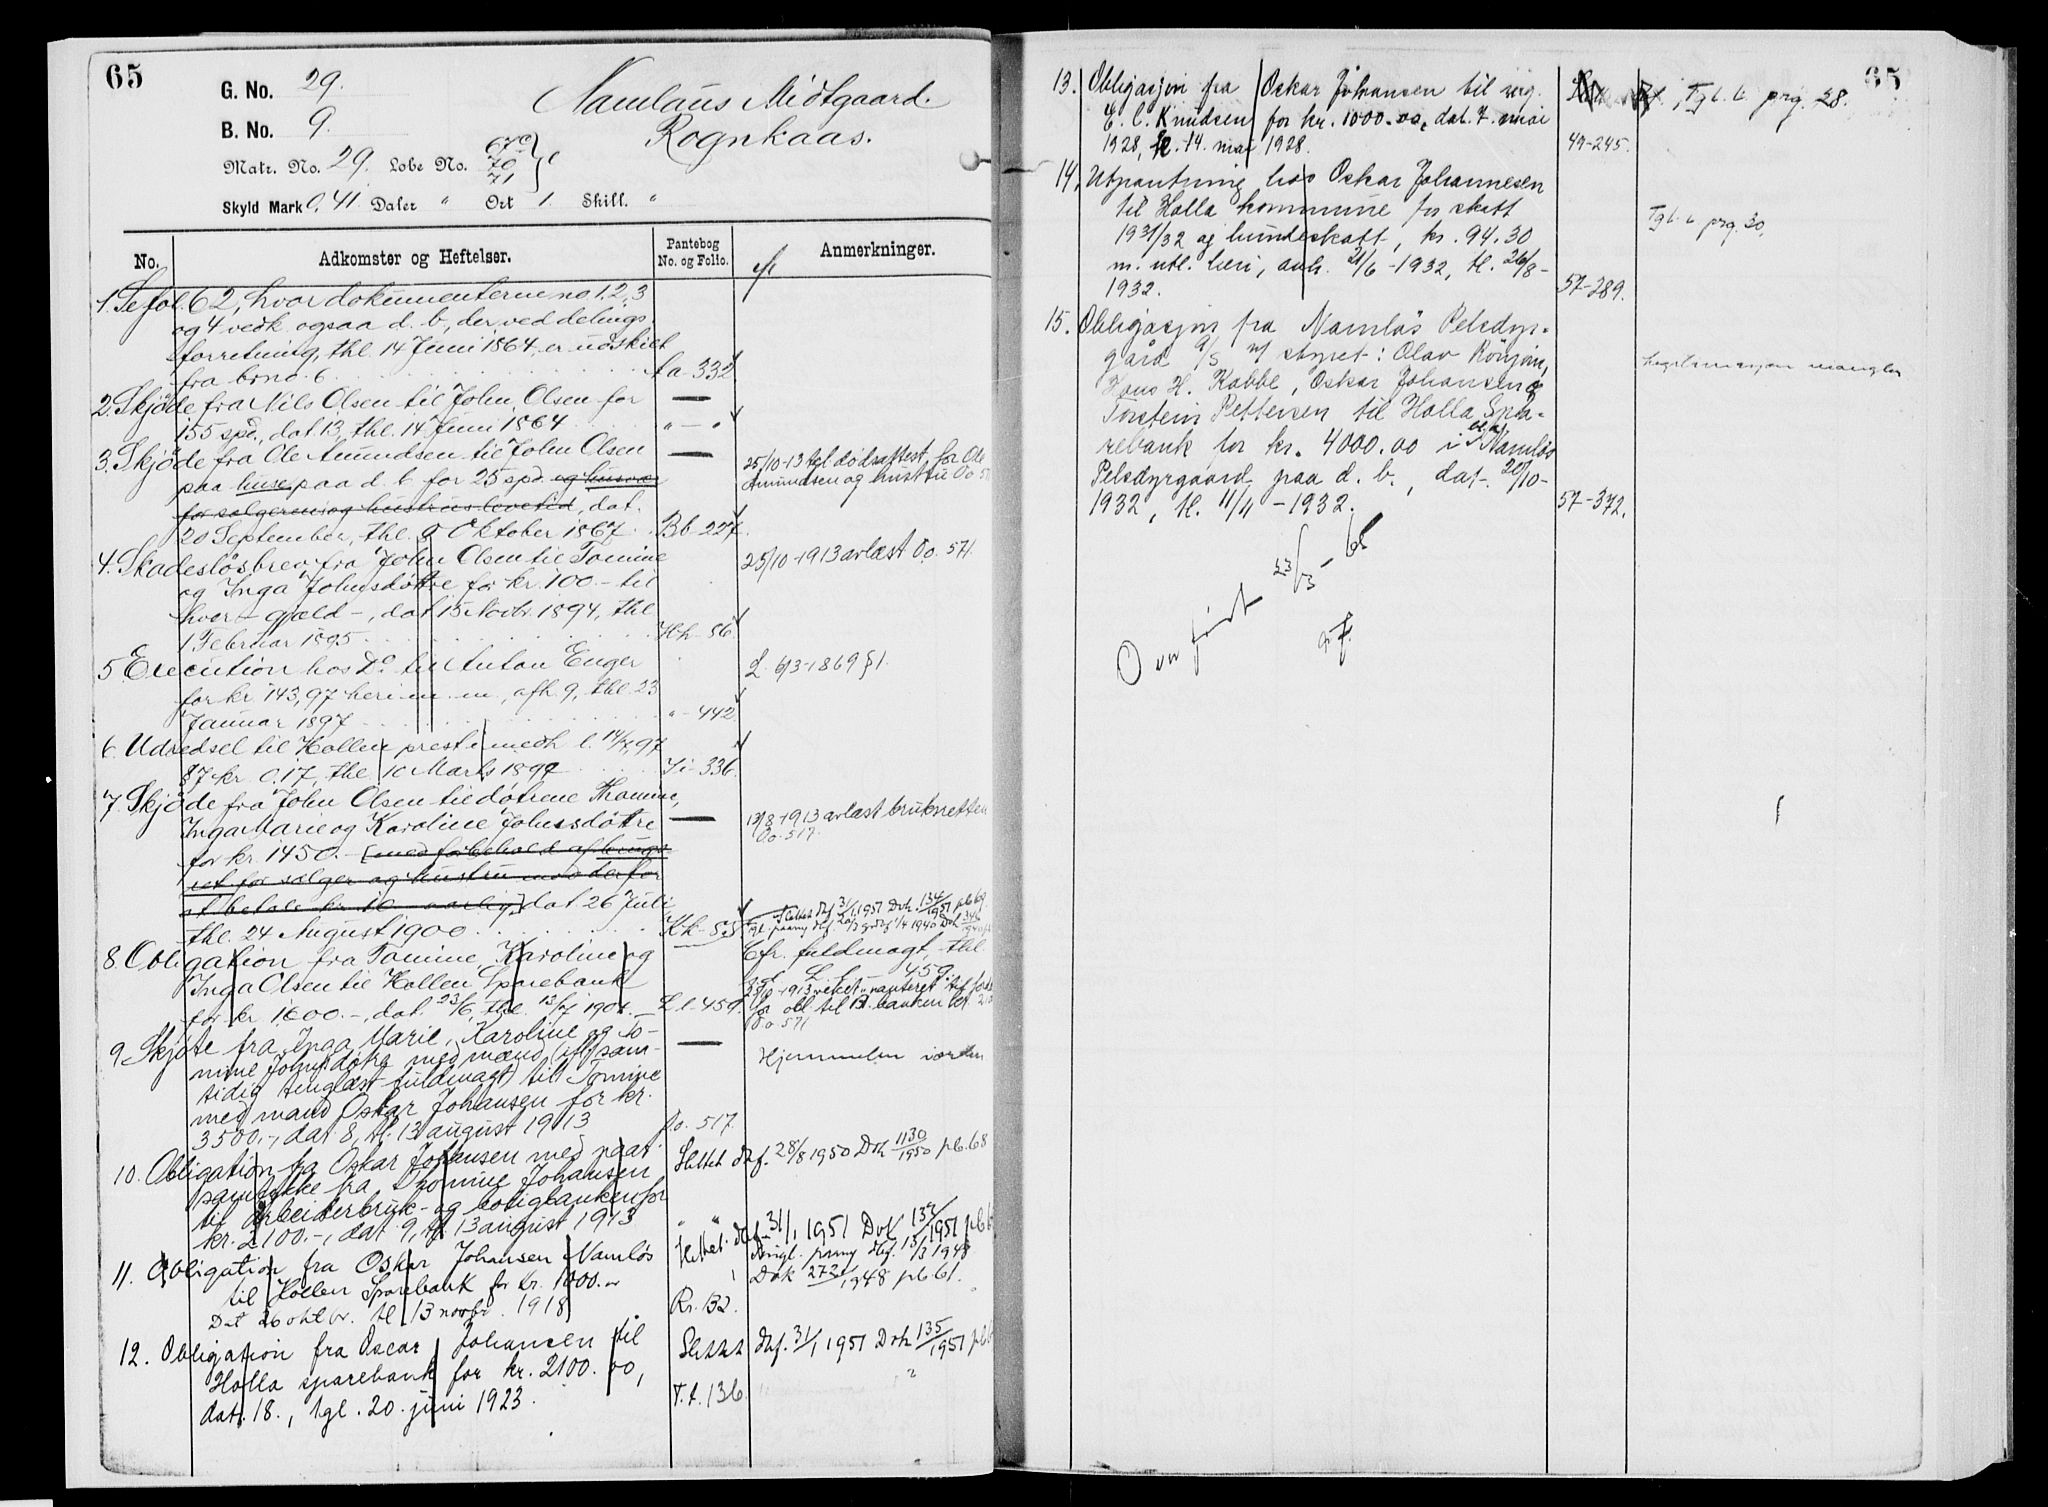 65
G. No. 29.
B. No. 9.
Matr. No. 29. Løbe No. 67c 70 71
Skyld Mark 0,41 Daler " Ort 1. Skill. "
Namlaus Midtgaard.
Rognkaas.
No. Adkomster og Heftelser. Pantebog No. og Folio. Anmerkninger.
1. Se fol. 62, hvor dokumenterne no 1, 2, 3
og 4 vedk. ogsaa d. b., der ved delings
forretning, thl. 14 Juni 1864, er udskilt
fra brno. 6. Aa-332
2. Skjøde fra Nils Olsen til John Olsen for
155 spd., dat. 13, thl. 14 Juni 1864 " - "
3. Skjøde fra Ole Amundsen til John Olsen
paa huse paa d. b. for 25 spd. og husvær
for sælgeren og hustrus levetid, dat.
20 September, thl. 9 Oktober 1867. Bb-227.
25/10-13 tgl dødsattest for Ole
Amundsen og hustru Oo 571
4. Skadesløsbrev fra John Olsen til Tomine
og Inga Johnsdøttre for kr. 100.- til
hver - gjæld -, dat 15 Novbr. 1894, thl.
1 Februar 1895 Hh-86.
25/10-1913 avlæst Oo. 571.
5. Execution hos Do. til Anton Enger
for kr. 143,97 heri m. m., afh. 9, thl. 23
Januar 1897 "-442
L. 6/3-1869 § 1.
6. Udredsel til Hollen prest i medh. l. 14/7 97
§ 7 kr. 0,17, thl. 10 Marts 1899 Ii-336.
7. Skjøde fra John Olsen til døtrene Thomine,
Inga Marie og Karoline Johnsdøttre
for kr. 1450.- [med forbehold af brugs
ret for sælger og hustru mod derfor
at betale kr. 10 aarlig,] dat 26 Juli
thl. 24 August 1900 Kk-55
13/8-1913 avlæst bruksretten
Oo. 517.
Slettet dbf. 31/1 1951 Dok. 134/1951 pb 69.
8. Obligation fra Tomine, Karoline og
Inga Olsen til Hollen Sparebank
for kr. 1600.-, dat. 23/6, thl. 13/7 1901. Ll-459.
Cfr. fuldmagt, thl.
L l. 459.
Oo 571
9. Skjøte fra Inga Marie, Karoline og To-
mine Johnsdøtre med mænd (iflg. sam-
tidig tinglæst fuldmagt) til Tomine
med mand Oskar Johansen for kr.
3500.-, dat 8, tl. 13 august 1913 Oo. 517.
Hjemmelen i orden
10. Obligation fra Oskar Johansen med pant
samtykke fra Thomine Johansen
til Arbeiderbruk- og boligbanken for
kr. 2100.-, dat 9, tl. 13 august 1913 " "
Slettet dbf. 28/8 1950 Dok 1130/1950 pb. 68
11. Obligation fra Oskar Johansen Namløs
til Hollen Sparebank for kr. 1000.-
Dat 26 oktbr. tl 13 novbr. 1918. Rr. 132.
Slettet dbf. 31/1 1951 Dok 132/1951 pb 6
Dok 272/1948 pb 61.
12. Obligation fra Oscar Johansen til
Holla sparebank for kr. 2100.00,
dat. 18., tgl. 20. juni 1923. T.t. 136.
Slettet dbf. 31/1 1951 Dok 135/1951 pb 6
65
13. Obligasjon fra Oskar Johansen til
E. C. Knudsen for kr. 1000.00, dat. 7. mai
1928, tl. 14. mai 1928. 49-245.
Tgl. b. prg. 28.
14. Utpantning hos Oskar Johannesen
til Holla kommune for skatt
1931/32 og hundeskatt, kr. 94.30
m. utl. heri, avh. 21/6-1932, tl. 26/8-
1932. 57-289.
Tgl. b. prg. 30.
15. Obligasjon fra Namløs Pelsdyr-
gård A/S v/ styret: Olav
Hans H. Kabbe, Oskar Johansen og
Torstein Pettersen til Holla Spa-
rebank for kr. 4000.00 i Namløs
Pelsdyrgaard paa d. b., dat. 20/10-
1932, tl. 11/11-1932. 57-372.
Legitimasjon mangler
Overført 23/5-61